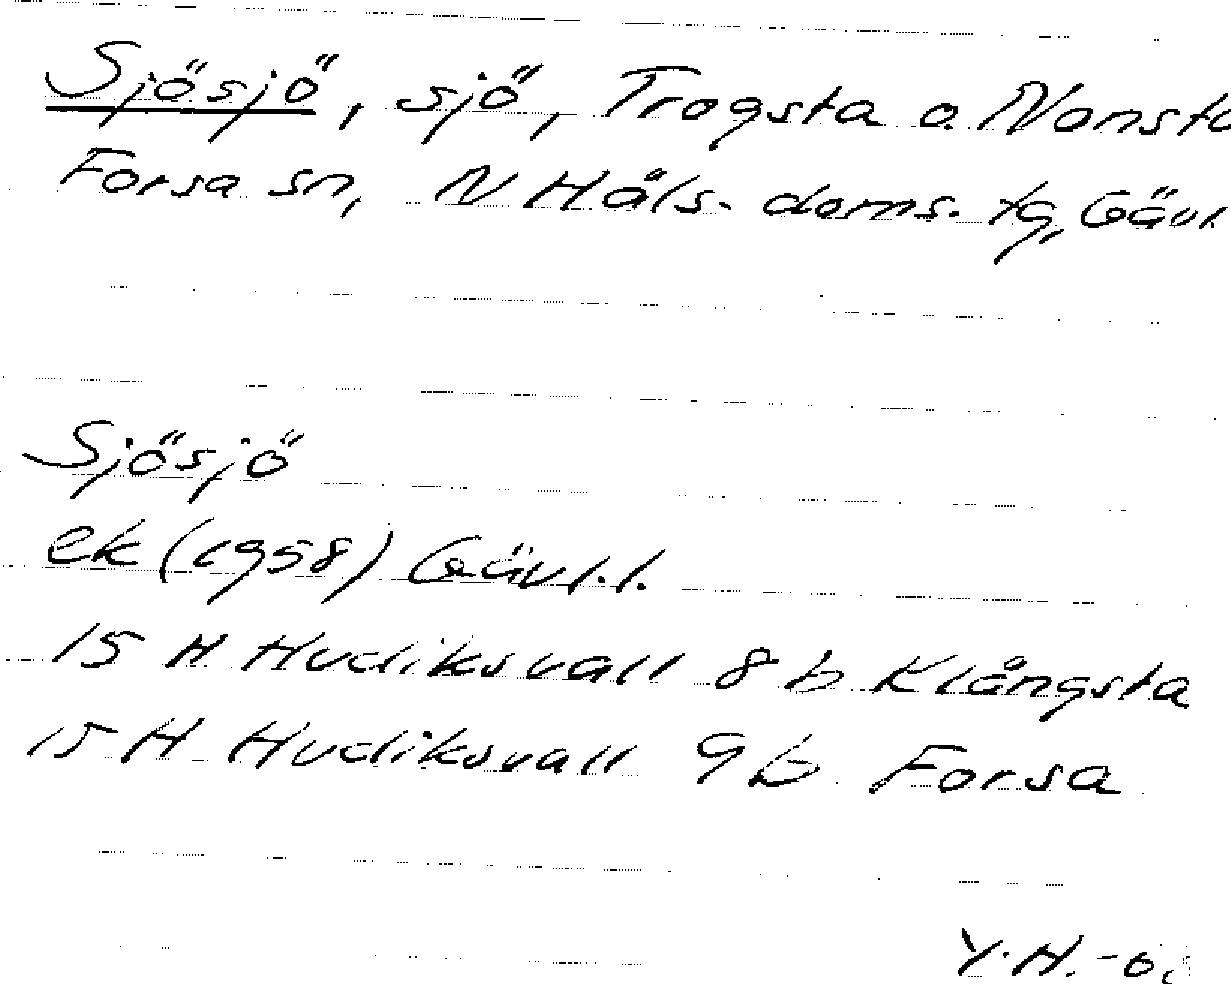 Sjösjö, sjö, Trogsta o. Nansta
Forsa sn, N Häls. doms. tg, Gävl.
Sjösjö
ek (1958) Gävl.l.
15 H Hudiksvall 8 b Klångsta
15 H Hudiksvall 9 b Forsa
Y.H.-